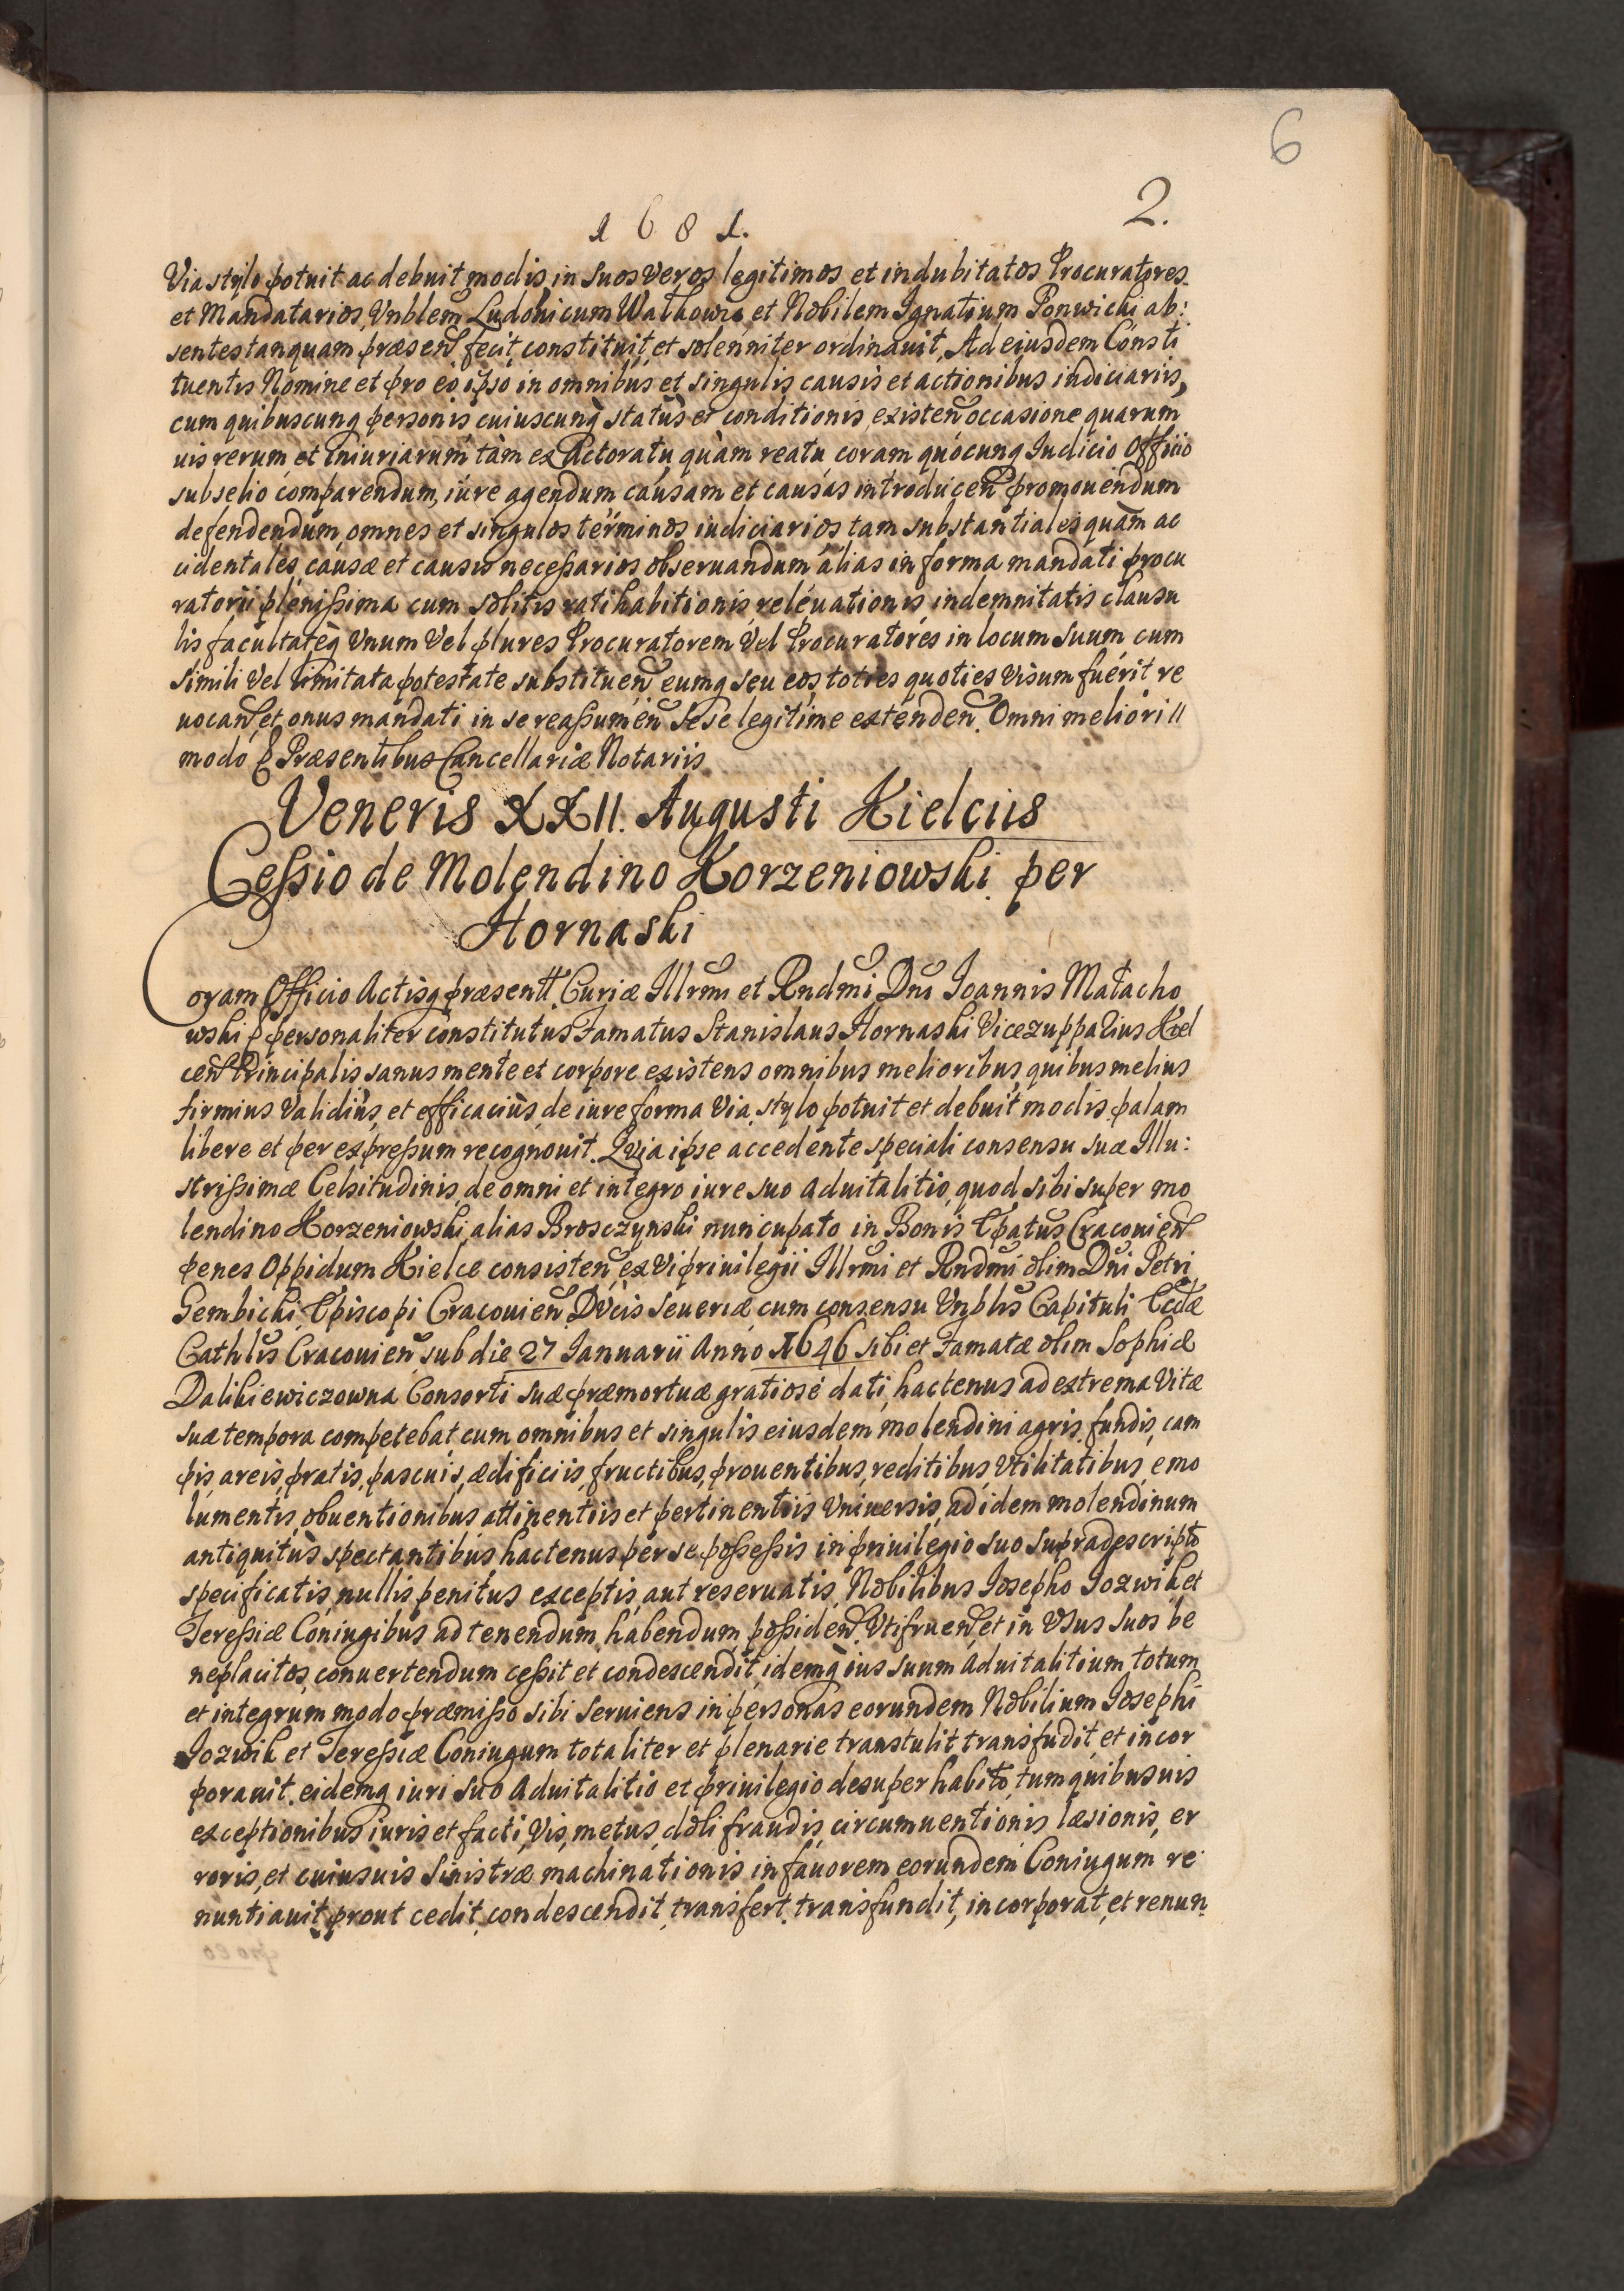 6
2.
1681.
Via stylo potuit ac debuit modis, in suos veros legitimos et indubitatos Procuratores
et Mandatarios, Vnblem Ludovicum et Nobilem Ignatium Ponwicki ab:
sentes tanquam præsen fecit, constituit, et solenniter ordinauit. Ad eiusdem Consti
tuentis Nomine et pro eo ipso in omnibus et singulis causis et actionibus iudiciariis,
cum quibuscunq personis cuiuscunq status et conditionis existen occasione quarum
uis rerum et iniuriarum tàm ex Actoratu quàm reatu coram quocunq Iudicio Officio
subselio comparendum, iure agendum causam et causas introducen promouendum
defendendum, omnes et singulos terminos iudiciarios tam substantiales quàm ac
cidentales, causæ et causis necessarios obseruandum aliàs in forma mandati procu
ratorii plenissima cum solitis ratihabitionis, releuationis indemnitatis clausu
lis facultateq Vnum Vel plures Procuratorem Vel Procuratores in locum suum cum
simili Vel limitata potestate substituen eumq seu eos toties quoties Visum fuerit re
uocan et onus mandati in se reassumen sese legitime extenden. Omni meliori
modo & Præsentibus Cancellariæ Notariis
Veneris XXII. Augusti Kielciis
Cessio de Molendino Korzeniowski per
Hornaski
Coram Officio Actisq præsentt. Curiæ Illrmi et Rndmi Dni Ioannis Małacho
wski & personaliter constitutus Famatus Stanislaus Hornaski Vicezuppatius Kiel
cen Principalis sanus mente et corpore existens omnibus melioribus, quibus melius
firmius Validius, et efficacius, de iure forma Via, stylo potuit et debuit modis palam
libere et per expressum recognouit. Quia ipse accedente speciali consensu suæ Illu:
strissimæ Celsitudinis, de omni et integro iure suo Aduitalitio, quod sibi super mo
lendino Korzeniowski alias Brosczynski nuncupato in Bonis Epatus Cracouien
penes Oppidum Kielce consisten ex Vi priuilegii Illrmi et Rndmi olim Dni Petri
Gembicki Episcopi Cracouien Ducis Seueriæ cum consensu Vnblis Capituli Eccliæ
Cathlis Cracouien sub die 27 Ianuarii Anno 1646 sibi et Famatæ olim Sophiæ
Dalikiewiczowna Consorti suæ præmortuæ gratiosè dati, hactenus ad extrema Vitæ
suæ tempora competebat, cum omnibus et singulis eiusdem molendini agris, fundis, cam
pis, areis, pratis, pascuis, ædificiis, fructibus, prouentibus, reditibus, Vtilitatibus, emo
lumentis, obuentionibus attinentiis et pertinentiis Vniuersis, ad idem molendinum
antiquitùs spectantibus hactenus per se possessis in priuilegio suo supradescripto
specificatis, nullis penitus exceptis, aut reseruatis, Nobilibus Iosepho Iozwik et
Teressiæ Coniugibus ad tenendum, habendum, possiden Vtifruen et in Vsus suos be
neplacitos, conuertendum cessit et condescendit, idemq ius suum Aduitalitium totum
et integrum modo præmisso sibi seruiens in personas eorundem Nobilium Iosephi
Iozwik et Teressiæ Coniugum totaliter et plenarie transtulit transfudit, et incor
porauit. eidemq iuri suo Aduitalitio et priuilegio desuper habito, tum quibusuis
exceptionibus iuris et facti, Vis, metus, doli fraudis, circumuentionis læsionis, er
roris, et cuiusuis Sinistræ machinationis in fauorem eorundem Coniugum re
nuntiauit, prout cedit, condescendit, transfert, transfundit, incorporat, et renun